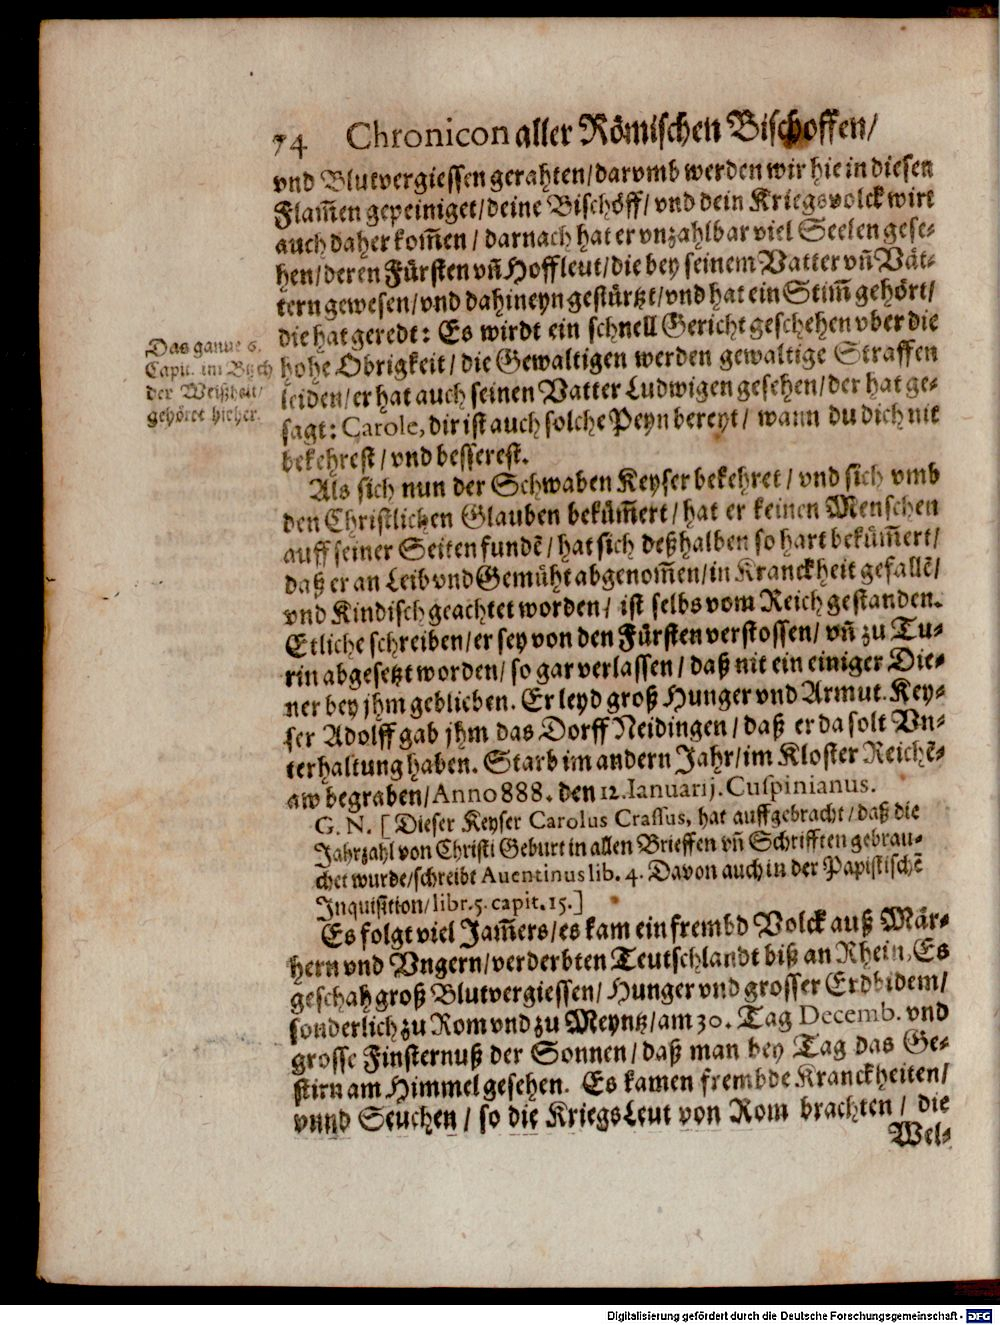 74 Chronicon aller Römischen Bischoffen/
vnd Blutvergiessen gerahten/darvmb werden wir hie in diesen
Flam̃en gepeiniget/deine Bischöff/vnd dein Kriegsvolck wirt
auch daher kom̃en/darnach hat er vnzahlbar viel Seelen gese-
hen/deren Fürsten vñ Hoffleut/die bey seinem Vatter vñ Vät-
tern gewesen/vnd dahineyn gestürtzt/vnd hat ein Stim̃ gehört/
die hat geredt: Es wirdt ein schnell Gericht geschehen vber die
hohe Obrigkeit/die Gewaltigen werden gewaltige Straffen
leiden/er hat auch seinen Vatter Ludwigen gesehen/der hat ge-
sagt: Carole, dir ist auch solche Peyn bereyt/wann du dich nit
bekehrest/vnd besserest.
Das gantze 6.
Capit. im Buch
der Weißheit/
gehöret hieher.
Als sich nun der Schwaben Keyser bekehret/vnd sich vmb
den Christlichen Glauben beküm̃ert/hat er keinen Menschen
auff seiner Seiten fundẽ/hat sich deßhalben so hart beküm̃ert/
daß er an Leib vnd Gemüht abgenom̃en/in Kranckheit gefallẽ/
vnd Kindisch geachtet worden/ist selbs vom Reich gestanden.
Etliche schreiben/er sey von den Fürsten verstossen/vñ zu Tu-
rin abgesetzt worden/so gar verlassen/daß nit ein einiger Die-
ner bey jhm geblieben. Er leyd groß Hunger vnd Armut. Key-
ser Adolff gab jhm das Dorff Neidingen/daß er da solt Vn-
terhaltung haben. Starb im andern Jahr/im Kloster Reichẽ-
aw begraben/Anno 888. den 12. Ianuarij. Cuspinianus.
G. N. [Dieser Keyser Carolus Crassus, hat auffgebracht/daß die
Jahrzahl von Christi Geburt in allen Brieffen vñ Schrifften gebrau-
chet wurde/schreibt Auentinus lib. 4. Davon auch in der Papistischẽ
Inquisition/libr. 5. capit. 15.]
Es folgt viel Jam̃ers/es kam ein frembd Volck auß Mär-
hern vnd Vngern/verderbten Teutschlandt biß an Rhein, Es
geschah groß Blutvergiessen/Hunger vnd grosser Erdbidem/
sonderlich zu Rom vnd zu Meyntz/am 30. Tag Decemb. vnd
grosse Finsternuß der Sonnen/daß man bey Tag das Ge-
stirn am Himmel gesehen. Es kamen frembde Kranckheiten/
vnnd Seuchen/so die KriegsLeut von Rom brachten/die
Wel-
Digitalisierung gefördert durch die Deutsche Forschungsgemeinschaft - DFG